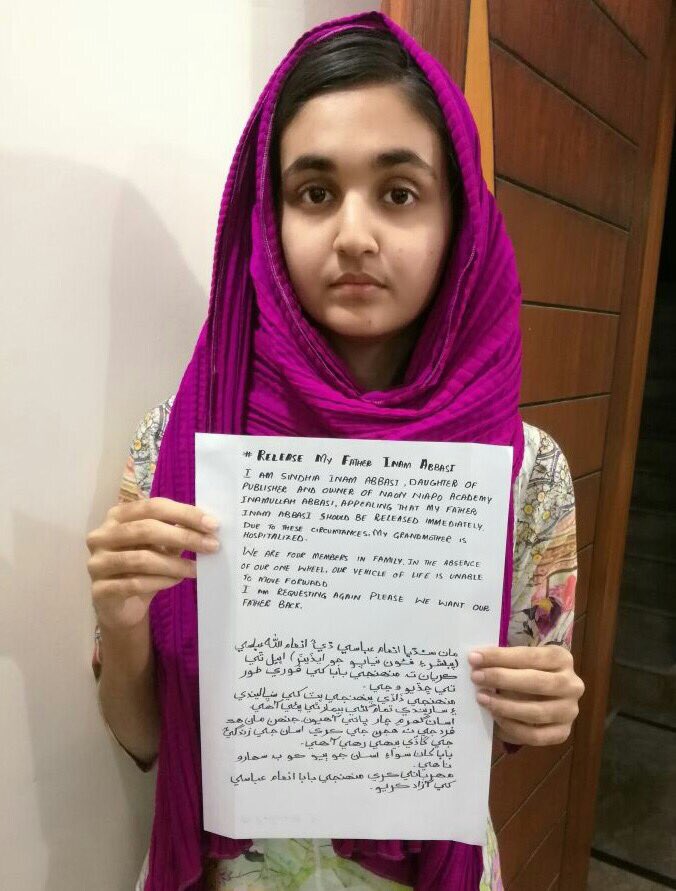 # RELEASE MY FATHER INAM ABBASI
I AM SINDHIA INAM ABBASI, DAUGHTER OF
PUBLISHER AND OWNER OF NAON NIAPO ACADEMY
INAMULLAH ABBASI, APPEALING THAT MY FATHER
INAM ABBASI SHOULD BE RELEASED IMMEDIATELY.
DUE TO THESE CIRCUMTANCES, MY GRANDMOTHER IS
HOSPITALIZED.
WE ARE FOUR MEMBERS IN FAMILY. IN THE ABSENCE
OF OUR ONE WHEEL, OUR VEHICLE OF LIFE IS UNABLE
TO MOVE FORWADD
I AM REQUESTING AGAIN PLEASE WE WANT OUR
FATHER BACK.
مان سنڌيا انعام عباسي ڌيءَ انعام الله عباسي
(پبلشر ۽ نئون نياپو جو ايڊيٽر) اپيل ٿي
ڪريان ته منهنجي بابا کي فوري طور
تي ڇڏيو وڃي.
منهنجي ڏاڏي پنهنجي پٽ کي سڀاليندي
۽ ساريندي تمام گهڻي بيمار ٿي پئي آهي.
اسان گهر ۾ چار ڀاتي آهيون جنهن مان هڪ
فرد جي نه هجڻ جي ڪري اسان جي زندگيءَ
جي گاڏي بيهي رهي آهي.
بابا کان سواءِ اسان جو ٻيو ڪو به سهارو
ناهي.
مهرباني ڪري منهنجي بابا انعام عباسي
کي آزاد ڪريو.